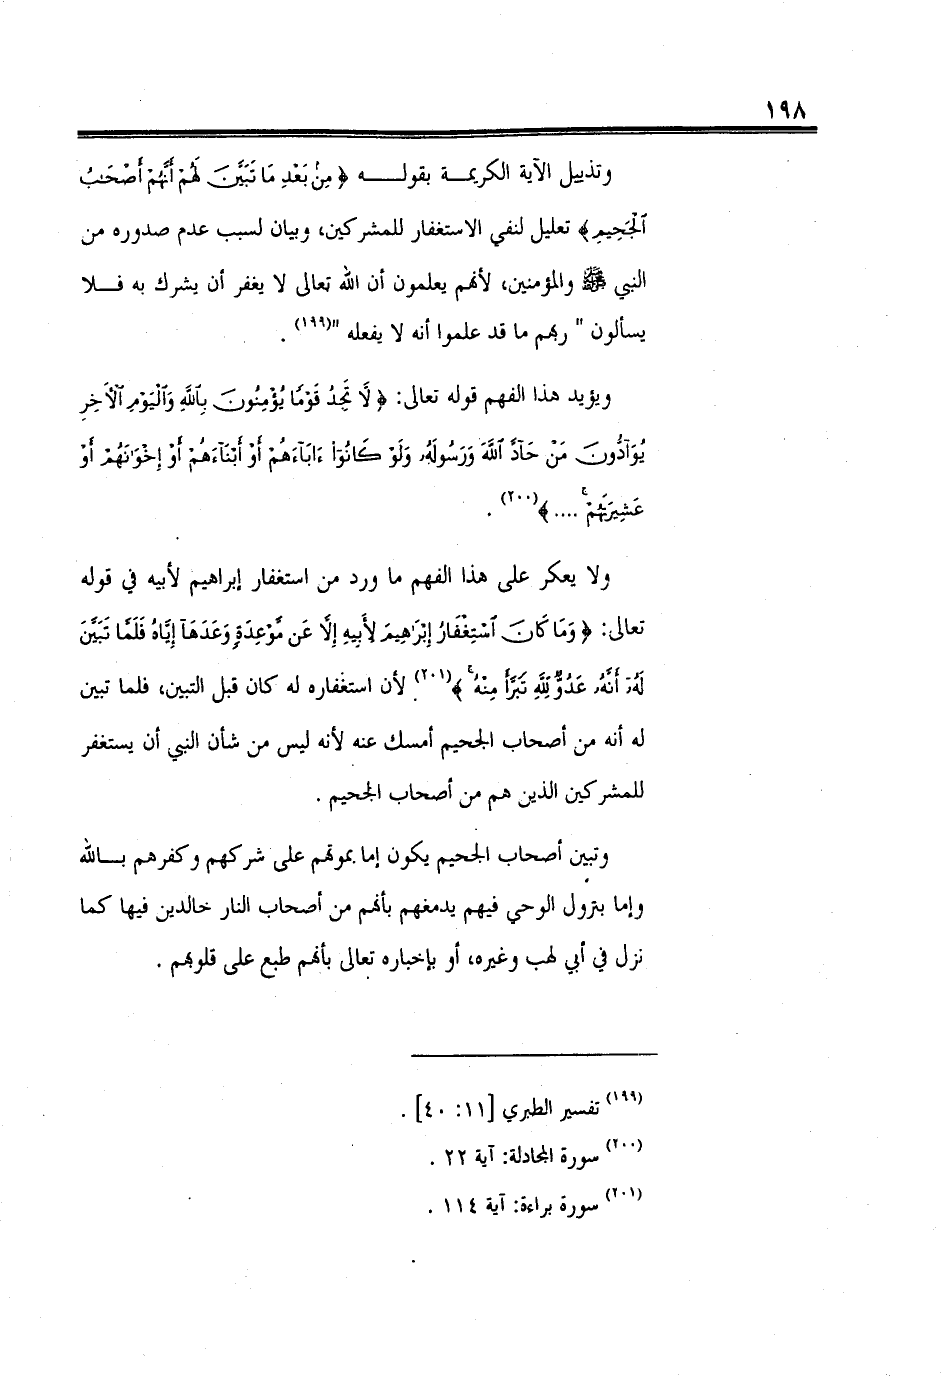 ١٩٨
وتذييل الآية الكريمـــة بقولـــــه ﴿ مِنۢ بَعْدِ مَا تَبَيَّنَ لَهُمْ أَنَّهُمْ أَصْحَٰبُ
ٱلْجَحِيمِ ﴾ تعليل لنفي الاستغفار للمشركين، وبيان لسبب عدم صدوره من
النبي ﷺ والمؤمنين، لأنهم يعلمون أن الله تعالى لا يغفر أن يشرك به فـــلا
يسألون " ربهم ما قد علموا أنه لا يفعله "(١٩٩) .
ويؤيد هذا الفهم قوله تعالى: ﴿ لَّا تَجِدُ قَوْمًا يُؤْمِنُونَ بِٱللَّهِ وَٱلْيَوْمِ ٱلْأَخِرِ
يُوَآدُّونَ مَنْ حَآدَّ ٱللَّهَ وَرَسُولَهُۥ وَلَوْ كَانُوٓا۟ ءَابَآءَهُمْ أَوْ أَبْنَآءَهُمْ أَوْ إِخْوَٰنَهُمْ أَوْ
عَشِيرَتَهُمْ ۚ .... ﴾(٢٠٠) .
ولا يعكر على هذا الفهم ما ورد من استغفار إبراهيم لأبيه في قوله
تعالى: ﴿ وَمَا كَانَ ٱسْتِغْفَارُ إِبْرَٰهِيمَ لِأَبِيهِ إِلَّا عَن مَّوْعِدَةٍ وَعَدَهَآ إِيَّاهُ فَلَمَّا تَبَيَّنَ
لَهُۥٓ أَنَّهُۥ عَدُوٌّ لِّلَّهِ تَبَرَّأَ مِنْهُ ۚ ﴾(٢٠١). لأن استغفاره له كان قبل التبين، فلما تبين
له أنه من أصحاب الجحيم أمسك عنه لأنه ليس من شأن النبي أن يستغفر
للمشركين الذين هم من أصحاب الجحيم .
وتبين أصحاب الجحيم يكون إما بموتهم على شركهم وكفرهم بـــالله
وإما بنزول الوحي فيهم يدمغهم بأنهم من أصحاب النار خالدين فيها كما
نزل في أبي لهب وغيره، أو بإخباره تعالى بأنهم طبع على قلوبهم .
(١٩٩) تفسير الطبري [١١: ٤٠] .
(٢٠٠) سورة المجادلة: آية ٢٢ .
(٢٠١) سورة براءة: آية ١١٤ .